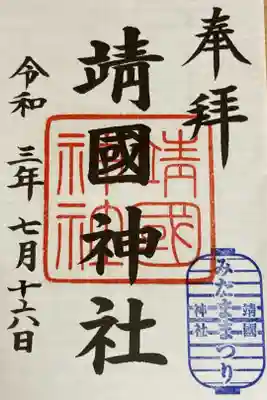 奉拝
靖國神社
靖國
神社
令和三年七月十六日
靖國
みたままつり
神社